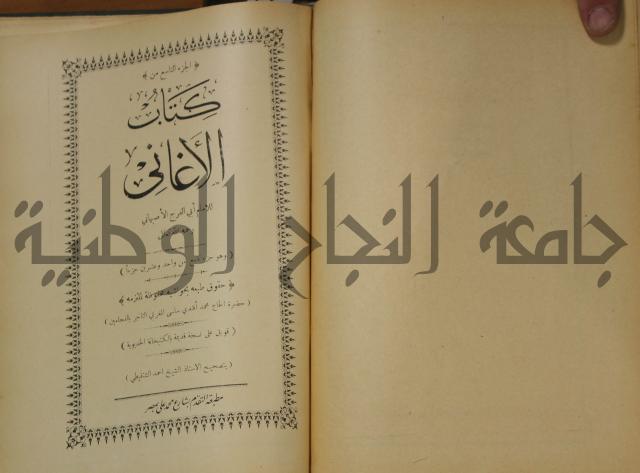 ﴿ الجزء التاسع من ﴾
كتاب
الأغاني
للامام أبي الفرج الأصبهاني
( وهو جزء من واحد وعشرين جزءا )
﴿ حقوق طبعه محفوظة لملتزمه ﴾
( حضرة الحاج محمد أفندي ساسي المغربي التاجر بالفحامين )
( قوبل على نسخة قديمة بالكتبخانة الخديوية )
( بتصحيح الاستاذ الشيخ احمد الشنقيطي )
مطبعة التقدم بشارع محمد علي بمصر
جامعة النجاح الوطنية